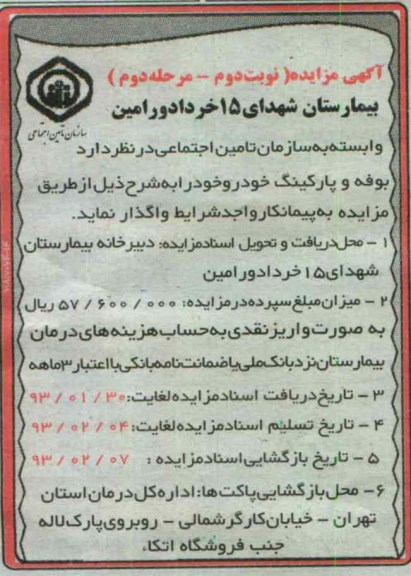 آگهی مزایده( نوبت دوم - مرحله دوم )
بیمارستان شهدای ۱۵ خرداد ورامین
سازمان تأمین اجتماعی
وابسته به سازمان تامین اجتماعی در نظر دارد
بوفه و پارکینگ خودرو خود را به شرح ذیل از طریق
مزایده به پیمانکار واجد شرایط واگذار نماید.
۱ - محل دریافت و تحویل اسناد مزایده: دبیرخانه بیمارستان
شهدای ۱۵ خرداد ورامین
۲ - میزان مبلغ سپرده در مزایده: ۵۷ / ۶۰۰ / ۰۰۰ ریال
به صورت واریز نقدی به حساب هزینه های درمان
بیمارستان نزد بانک ملی یا ضمانت نامه بانکی با اعتبار ۳ ماهه
۳ - تاریخ دریافت اسناد مزایده لغایت: ۹۳ / ۰۱ / ۳۰
۴ - تاریخ تسلیم اسناد مزایده لغایت: ۹۳ / ۰۲ / ۰۴
۵ - تاریخ بازگشایی اسناد مزایده : ۹۳ / ۰۲ / ۰۷
۶ - محل بازگشایی پاکت ها: اداره کل درمان استان
تهران - خیابان کارگر شمالی - روبروی پارک لاله
جنب فروشگاه اتکاء